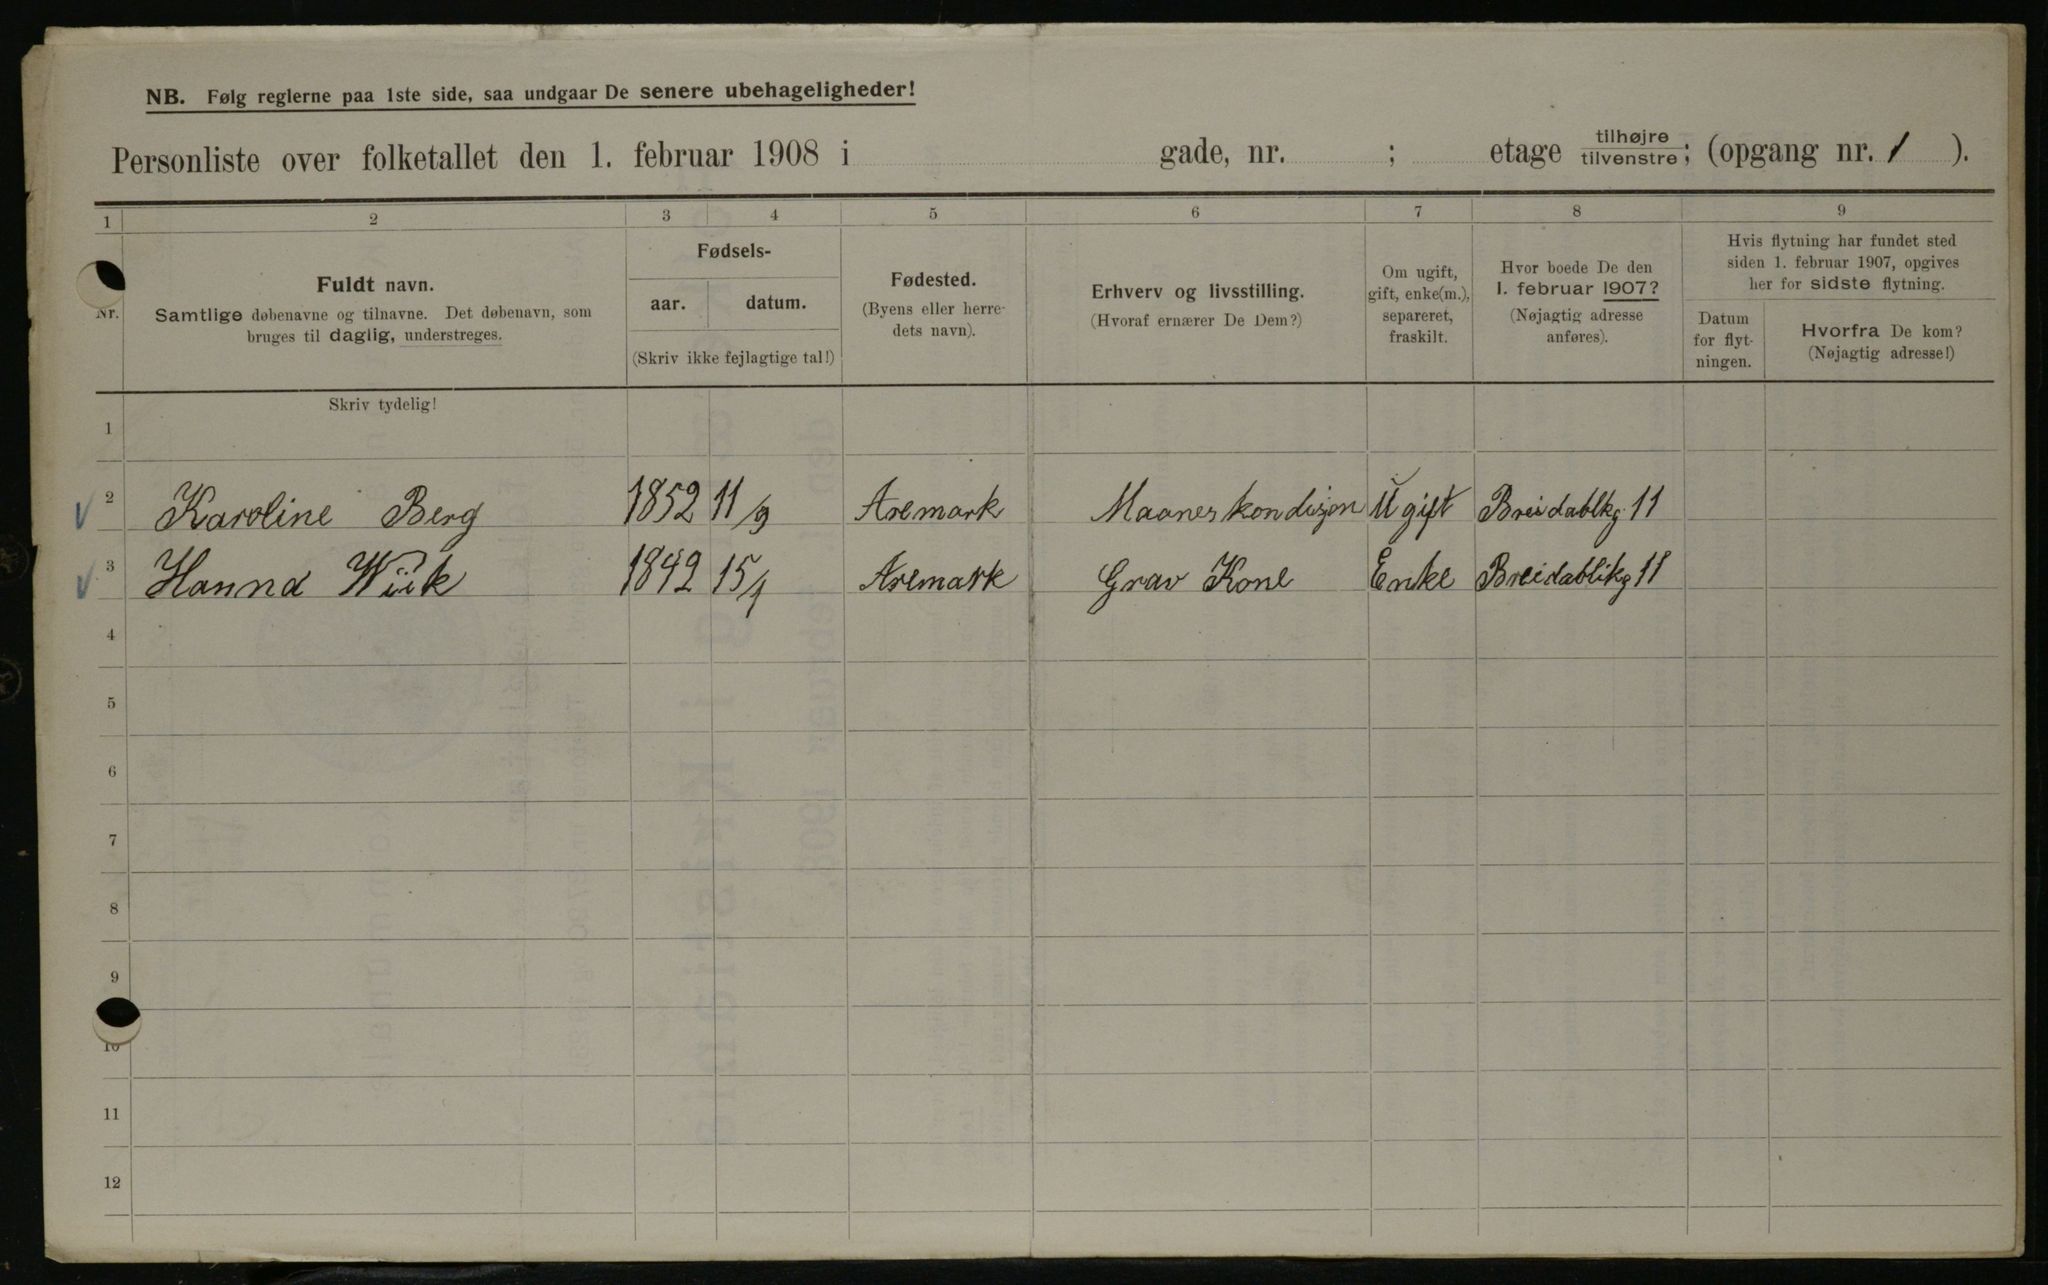 NB. Følg reglerne paa 1ste side, saa undgaar De senere ubehageligheder!
Personliste over folketallet den 1. februar 1908 i gade, nr. ; etage tilhøjre tilvenstre; (opgang nr. 1 ).
1 2 3 4 5 6 7 8 9
Nr.
Fuldt navn.
Samtlige døbenavne og tilnavne. Det døbenavn, som
bruges til daglig, understreges.
Fødsels-
aar. datum.
(Skriv ikke fejlagtige tal!)
Fødested.
(Byens eller herre-
dets navn).
Erhverv og livsstilling.
(Hvoraf ernærer De Dem?)
Om ugift,
gift, enke(m.),
separeret,
fraskilt.
Hvor boede De den
1. februar 1907?
(Nøjagtig adresse
anføres).
Hvis flytning har fundet sted
siden 1. februar 1907, opgives
her for sidste flytning.
Datum
for flyt-
ningen.
Hvorfra De kom?
(Nøjagtig adresse!)
Skriv tydelig!
1
2 Karoline Berg 1852 11/9 Aremark Maaneskondisjon Ugift Breidablkg 11
3 Hanna Wiik 1842 15/1 Aremark Grav Kone Enke Breidablikg 11
4
5
6
7
8
9
10
11
12